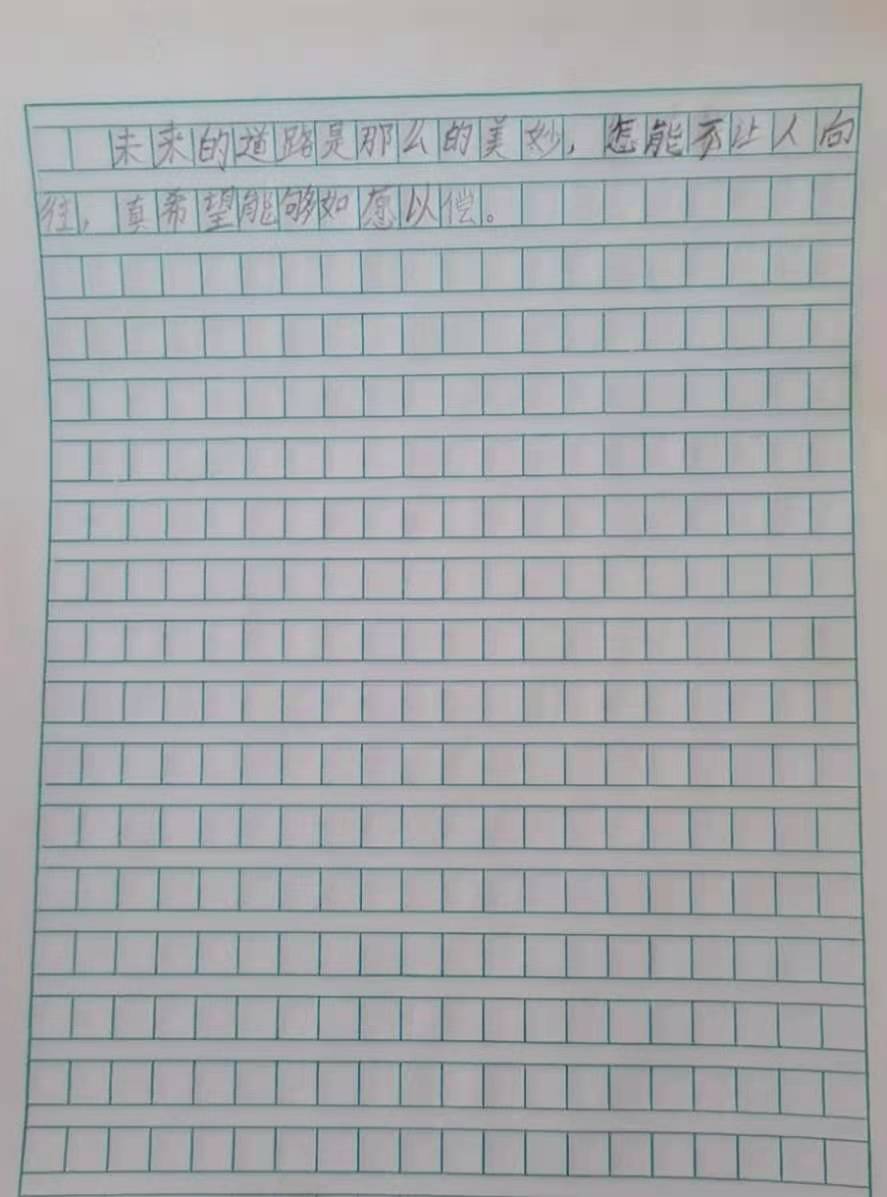 未来的道路是那么的美妙，怎能不让人向
往，真希望能够如愿以偿。